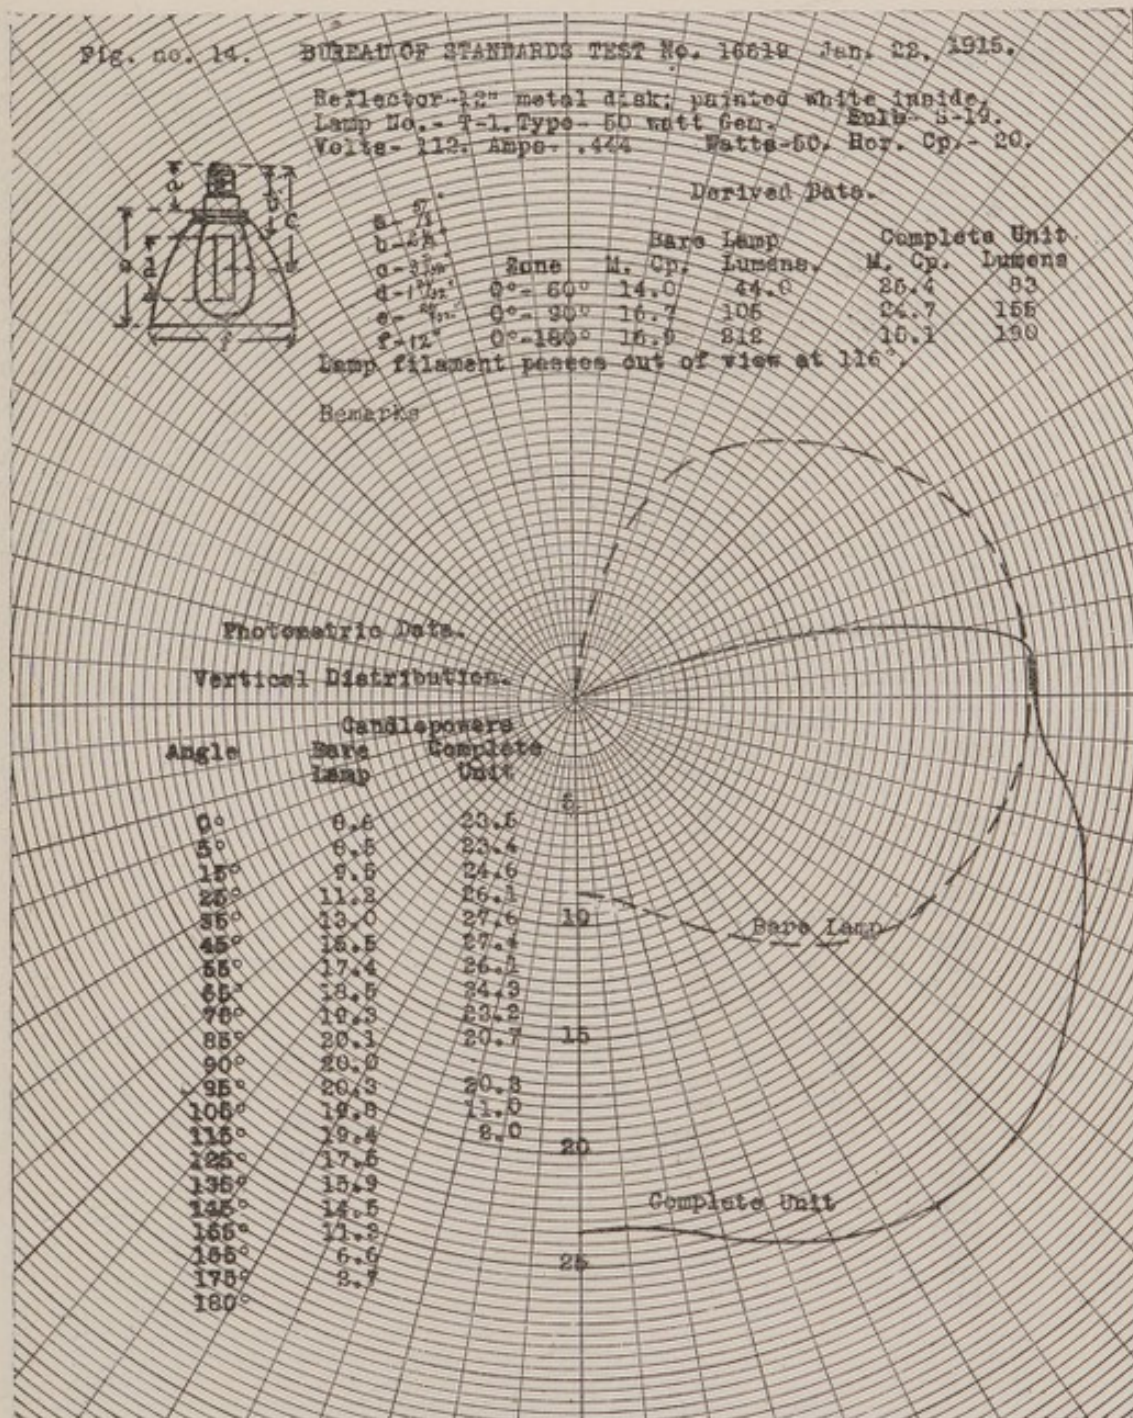 Fig. no. 14. BUREAU OF STANDARDS TEST No. 16619 Jan. 22, 1915.
Reflector-12" metal disk; painted white inside.
Lamp No.- T-1. Type- 50 watt Gem. Bulb- S-19.
Volts- 112. Amps- .444 Watts-50. Hor. Cp.- 20.
Derived Data.
Bare Lamp Complete Unit
Zone M. Cp. Lumens. M. Cp. Lumens
0°- 60° 14.0 44.0 26.4 83
0°- 90° 16.7 105 24.7 155
0°-180° 16.9 212 15.1 190
a b c d e f
a-
b-
c-
d-
e-
f-12"
Lamp filament passes out of view at 116°.
Remarks
Photometric Data.
Vertical Distribution.
Candlepowers
Angle Bare Complete
Lamp Unit
0° 23.5
5° 8.5 23.4
15° 9.5 24.6
25° 11.2 26.1
35° 13.0 27.6
45° 15.5 27.4
55° 17.4 26.1
65° 18.5 24.3
75° 19.3 23.2
85° 20.1 20.7
90° 20.0
95° 20.3 20.3
105° 19.8 11.0
115° 19.4 2.0
125° 17.5
135° 15.9
145° 14.5
155° 11.3
165° 6.6
175° 2.7
180°
5
10
15
20
25
Bare Lamp
Complete Unit